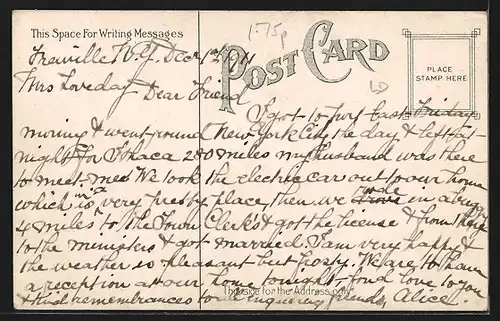 This Space For Writing Messages
1.75p
POST CARD
PLACE
STAMP HERE
LD
Freiville N.Y. Dec 12 1911
Mrs Loveday
Dear Friend
I got to port last Friday
morning & went round New York City the day & left Sat-
night for Ithaca 280 miles my husband was there
to meet me We took the electric car out to our home
which is in a very pretty place then we rode in a buggy
4 miles to the Town Clerk's & got the license & from there
to the ministers & got married I am very happy &
the weather is pleasant but frosty. We are to have
a reception at our home tonight fond love to you
& kind remembrances to all enquiring friends, Alice.
This side for the Address only